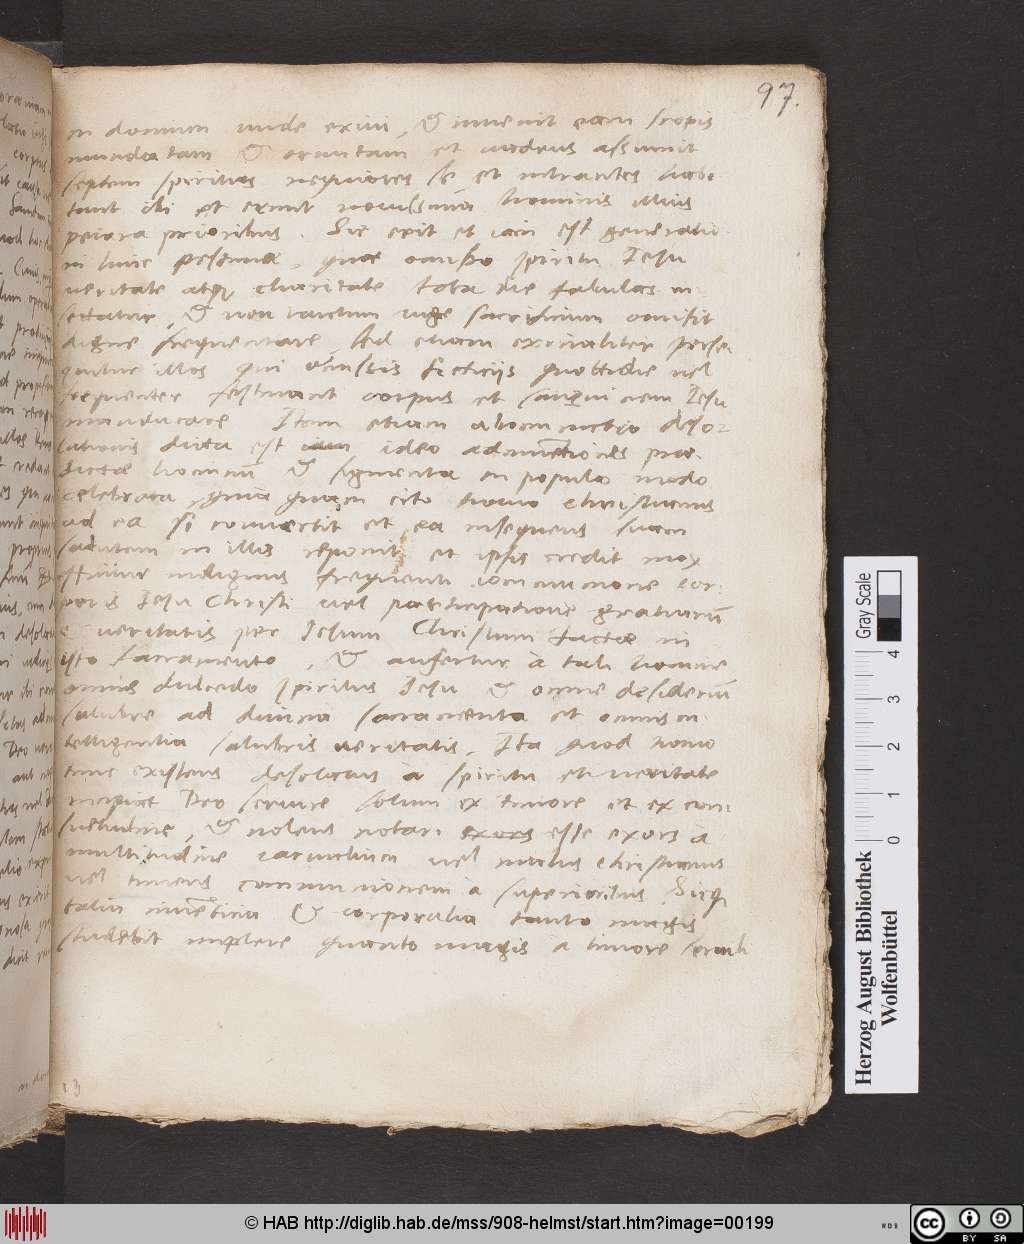 97.
in domum unde exiui, & inuenit eam scopis
mundatam & ornatam et uadens assumit
septem spiritus nequiores se et intrantes habi
tant ibi et erunt nouissima hominis illius
peiora prioribus. Sic erit et iam est generatio
ni huic pessimae, quae omisso spiritu Iesu
ueritate atque charitate tota die fabulas in
sectatur, & non tantum iuge sacrificium omisit
digne frequentare sed etiam exitialiter perse
quitur illos qui omissis ficticiis quottidie uel
frequenter festinant corpus et sanguinem Iesu
manducare Item etiam abominatio deso
lationis dicta est ideo adinuentiones prae
dictae hominum & figmenta in populo modo
celebrata, quia quam cito homo christianus
ad ea se conuertit et ea insequens suam
salutem in illis reponit et ipsis credit mox
efficitur indignus frequenti communione cor
poris Iesu Christi uel participatione gratiarum
& ueritatis per Iesum Christum factae in
isto sacramento, & aufertur à tali homine
omnis dulcedo spiritus Iesu & omne desiderium
salubre ad diuina sacramenta et omnis in
telligentia salubris ueritatis. Ita quod homo
tunc existens desolatus à spiritu et ueritate
incipiat Deo seruire solum ex timore et ex con
suetudine, & nolens notari exors esse exors à
multitudine carnalium uel malus christianus
uel timens communionem à superioribus. Sicque
talia & corporalia tanto magis
studebit implere quanto magis à timore seruili
in do
13
Gray Scale
0 1 2 3 4
Herzog August Bibliothek
Wolfenbüttel
© HAB http://diglib.hab.de/mss/908-helmst/start.htm?image=00199
WDB
cc BY SA